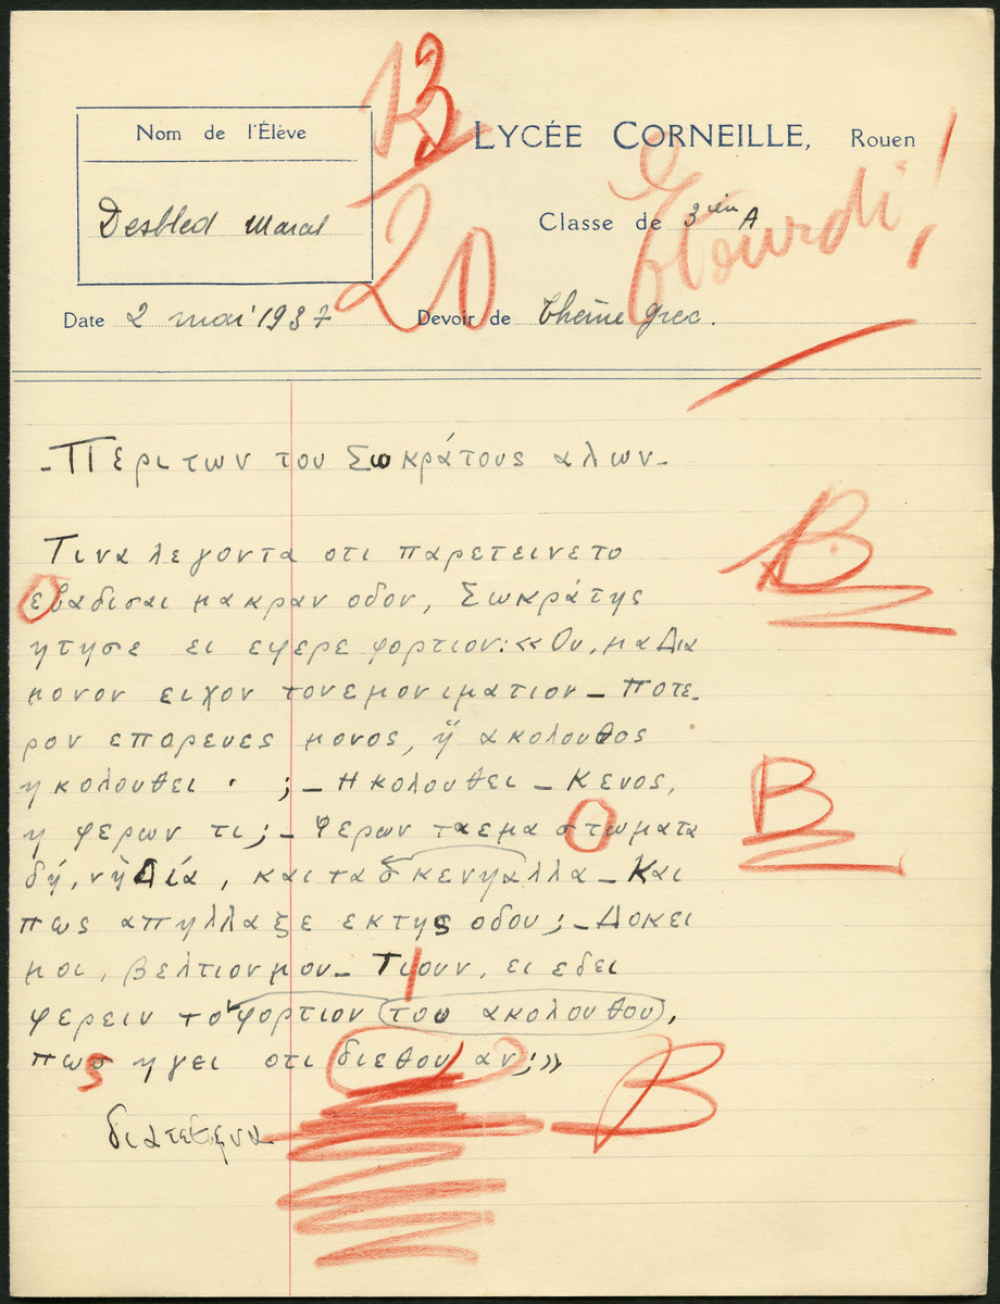 13
20
Nom de l'Élève
LYCÉE CORNEILLE, Rouen
Desbled Marcel
Classe de 3ième A
Étourdi !
Date 2 mai 1937 Devoir de thème grec.
- Περι των του Σωκράτους αλων -
Τινα λεγοντα οτι παρετεινετο
εβαδισαι μακραν οδον, Σωκράτης
ητησε ει εφερε φορτιον: «Ου, μα Δια
μονον ειχον τονεμον ιματιον _ Ποτε_
ρον επορευες μονος, ἤ ακολουθος
ηκολουθει · ; _ Ηκολουθει _ Κενος,
η φερων τι; _ Φερων ταεμα στωματα
δή, νὴ Δία, και τα σκενηαλλα _ Και
πως απηλλαξε εκ της οδου; _ Δοκει
μοι, βελτιον μου _ Τι ουν, ει εδει
φερειν το φορτιον του ακολουθου,
πως ηγει οτι διεθου αν; »
B
B
B